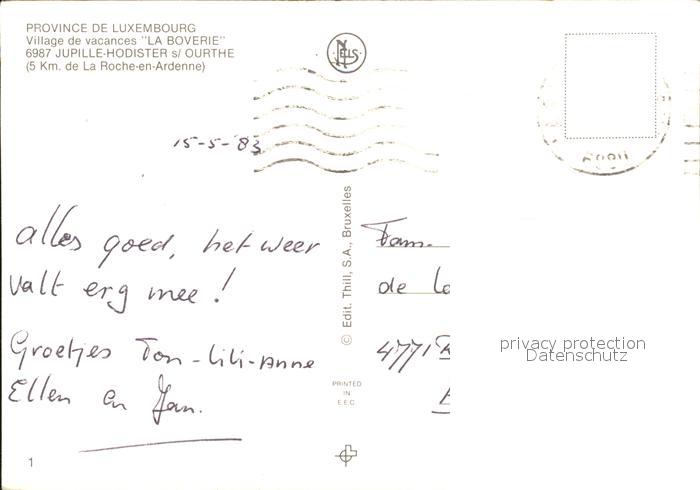 PROVINCE DE LUXEMBOURG
Village de vacances "LA BOVERIE"
6987 JUPILLE-HODISTER s/ OURTHE
(5 Km. de La Roche-en-Ardenne)
NELS
15-5-'83
alles goed, het weer
valt erg mee!
Groetjes Ton-lili-anne
Ellen en Jan.
1
© Edit. Thill, S.A., Bruxelles
PRINTED
IN
E.E.C.
Fam.
de
4771
privacy protection
Datenschutz